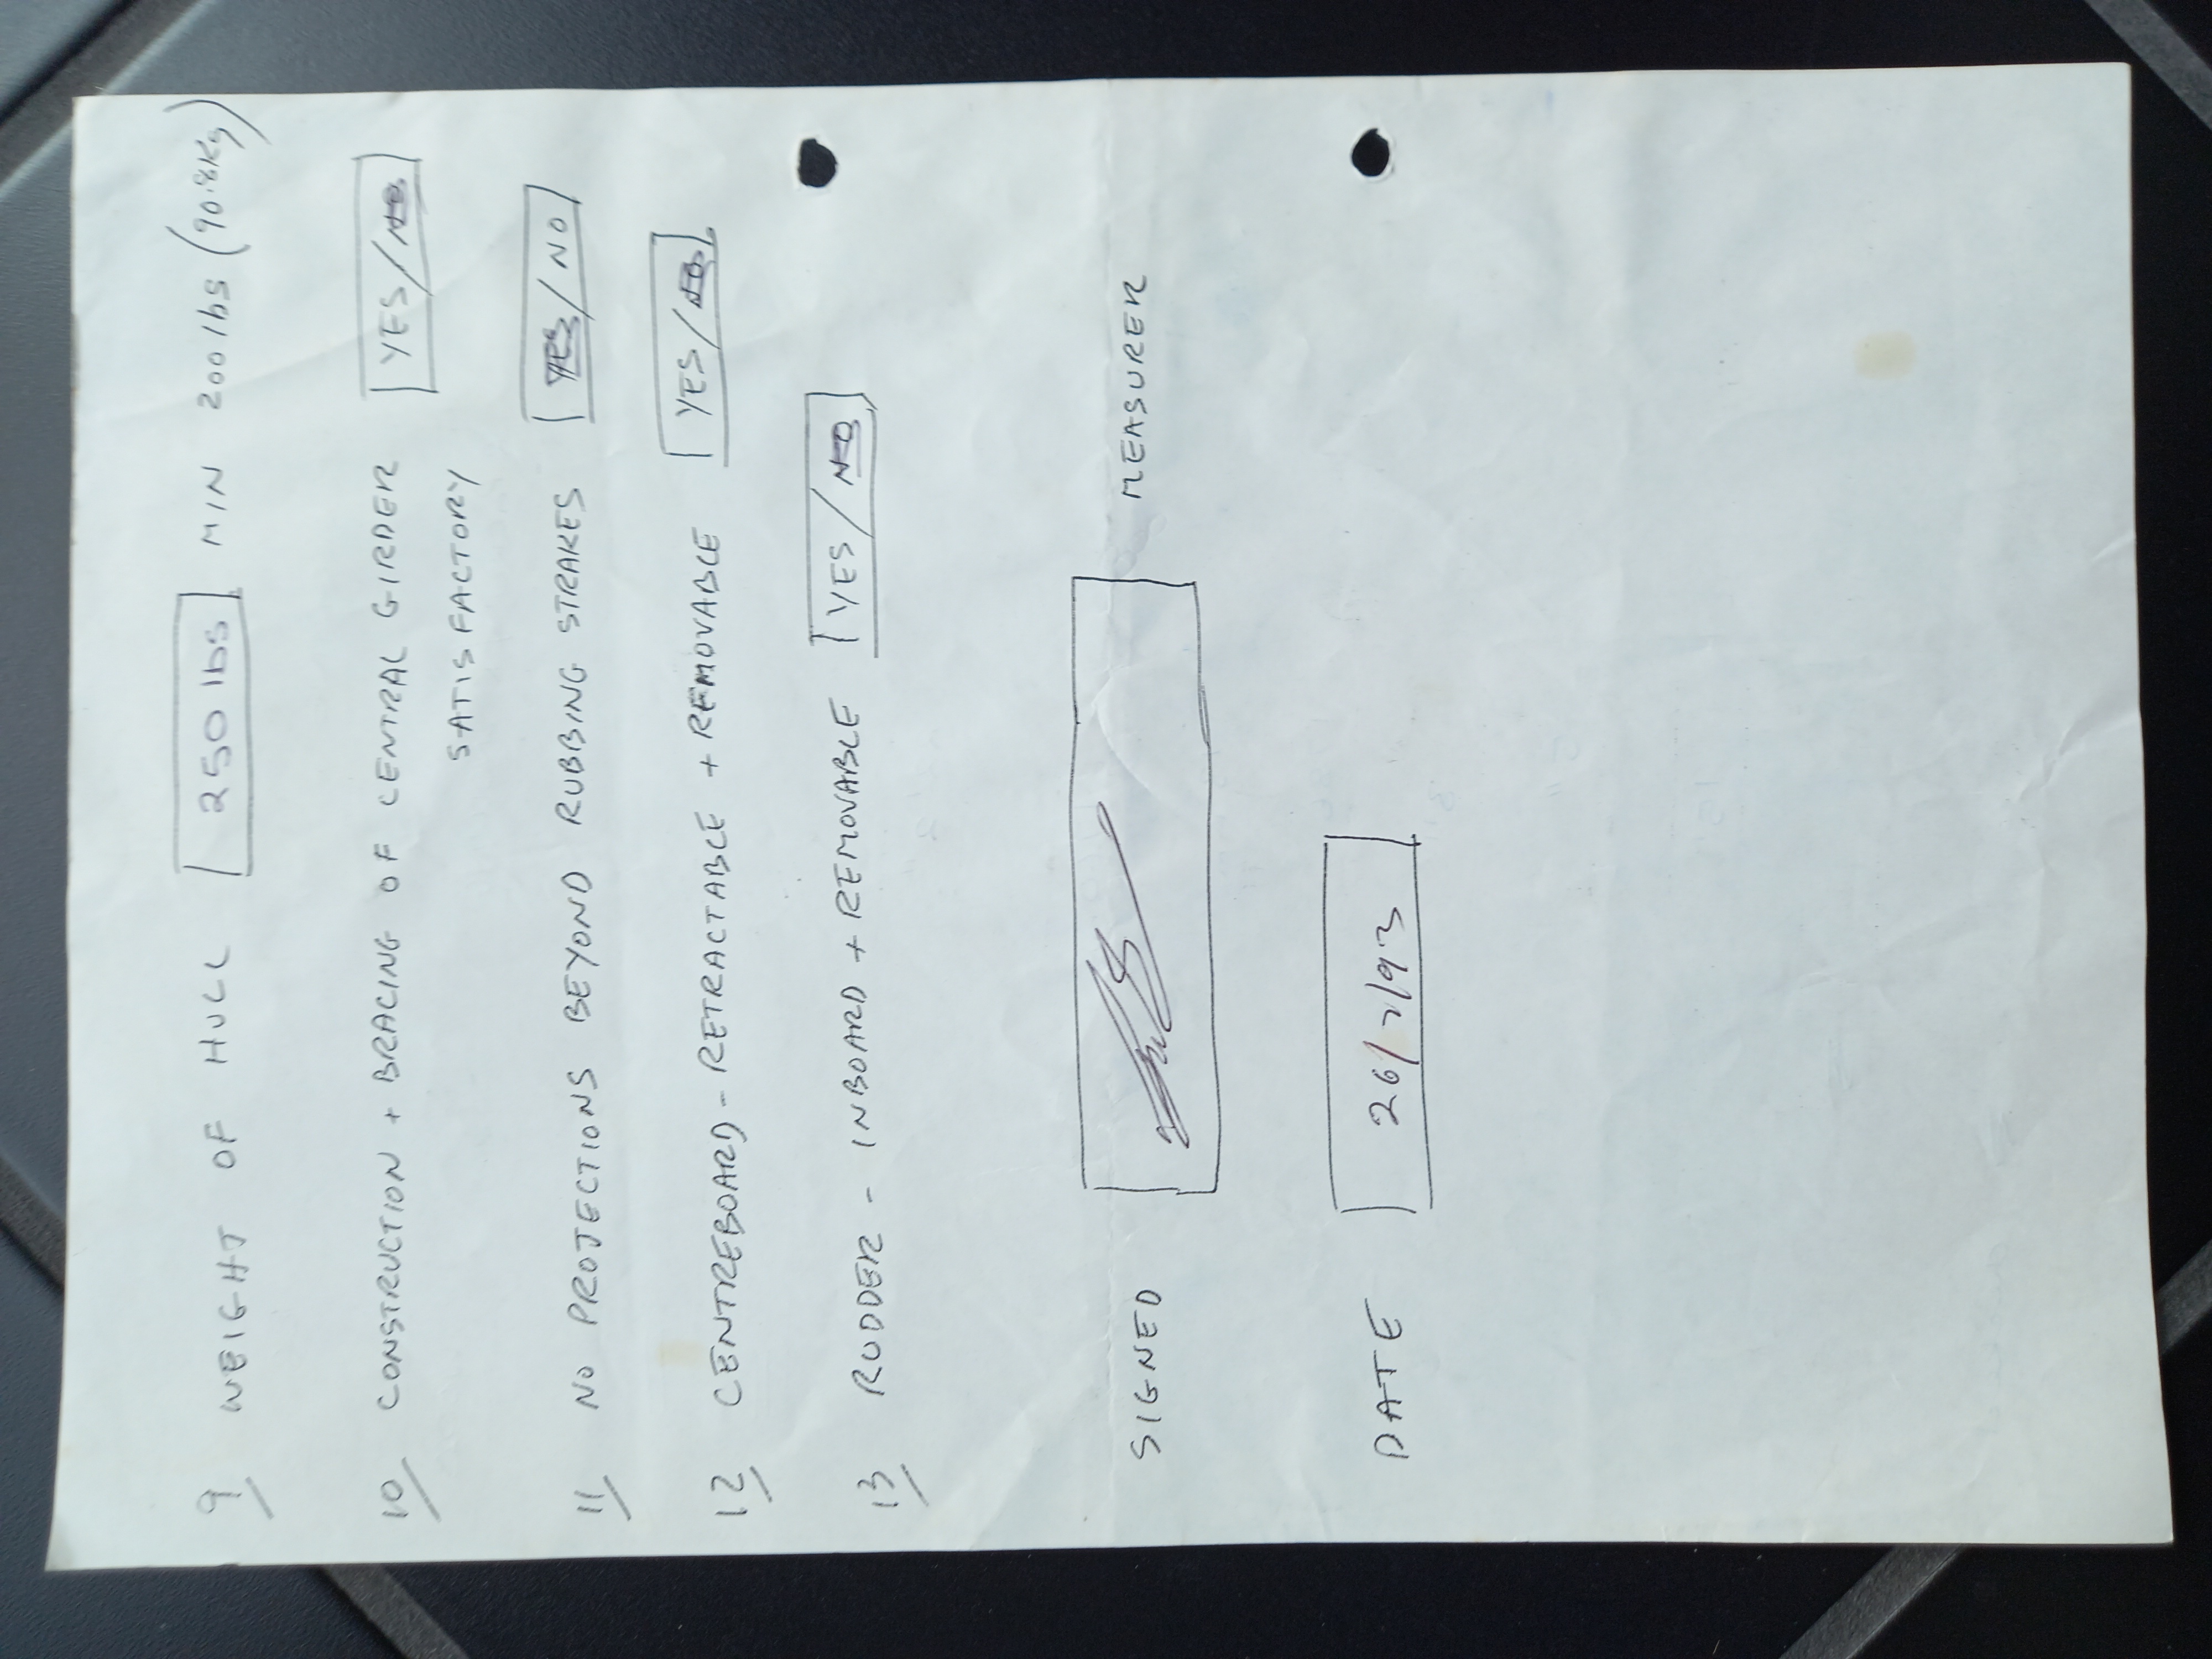 9 WEIGHT OF HULL 250 lbs MIN 200 lbs (90.8Kg)
10 CONSTRUCTION + BRACING OF CENTRAL GIRDER YES / NO
SATISFACTORY
11 NO PROJECTIONS BEYOND RUBBING STRAKES YES / NO
12 CENTREBOARD - RETRACTABLE + REMOVABLE YES / NO
13 RUDDER - INBOARD + REMOVABLE YES / NO
SIGNED MEASURER
DATE 26/7/93